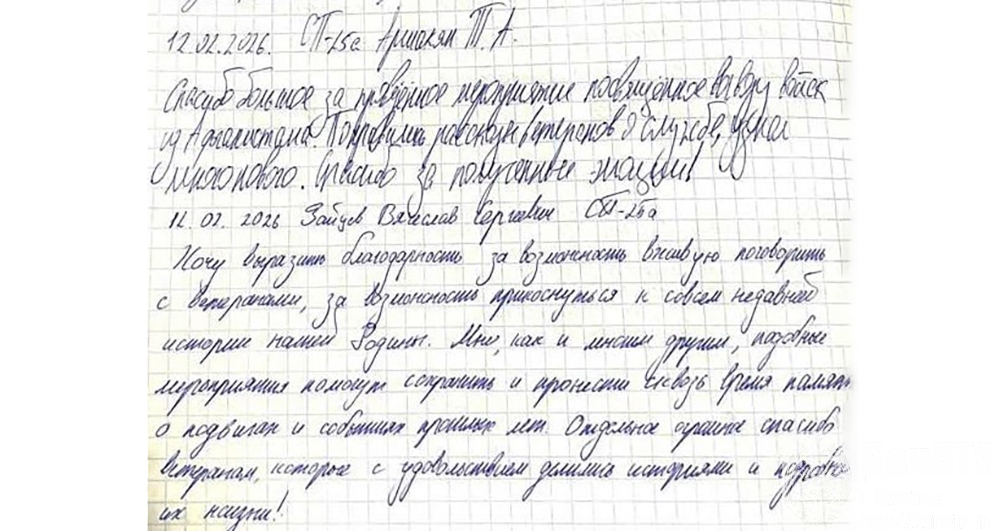 12.02.2026. СП-25а Аршакян Т.А.
Спасибо большое за проведённое мероприятие посвящённое выводу войск
из Афганистана. Понравились рассказы ветеранов о службе, узнал
много нового. Спасибо за полученные эмоции!
12.02.2026 Зайцев Вячеслав Сергеевич СП-25а
Хочу выразить благодарность за возможность вживую поговорить
с ветеранами, за возможность прикоснуться к совсем недавней
истории нашей Родины. Мне, как и многим другим, подобные
мероприятия помогут сохранить и пронести сквозь время память
о подвигах и событиях прошлых лет. Отдельное огромное спасибо
ветеранам, которые с удовольствием делились историями и
их жизни!